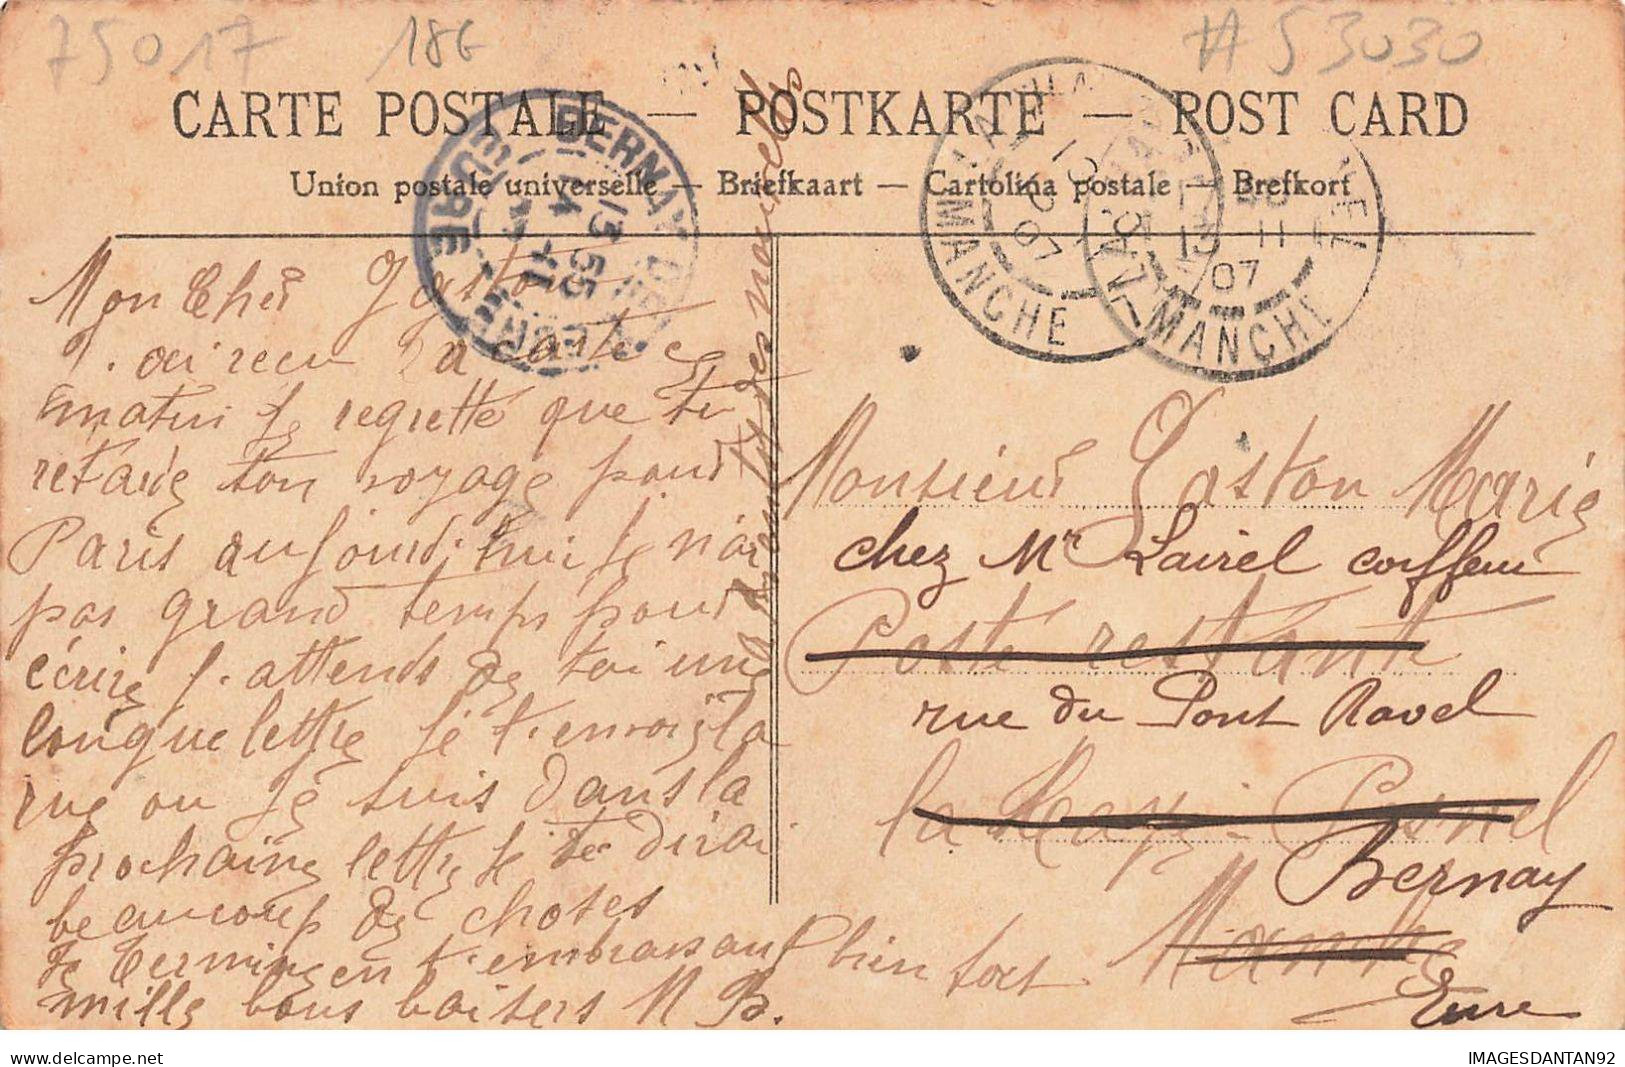 75017 186 #53030
CARTE POSTALE — POSTKARTE — POST CARD
Union postale universelle — Briefkaart — Cartolina postale — Brefkort
BERNAY
EURE
13 55
MANCHE
07
MANCHE
11
07
Mon Cher Gaston
J'ai recu ta carte ce
matin je regrette que tu
retarde ton voyage pour
Paris aujourd'hui je n'ai
pas grand temps pour
écrire j'attends de toi une
longue lettre je t'envoi la
rue ou je suis dans la
prochaine lettre je te dirai
beaucoup de choses
Je termine en t'embrassant bien fort
mille bons baisers M B.
nouvelle
Monsieur Gaston Marie
chez Mr Lairel coiffeur
Poste restante
rue du Pont Ravel
la Haye-Pesnel
Bernay
Manche
Eure
IMAGESDANTAN92